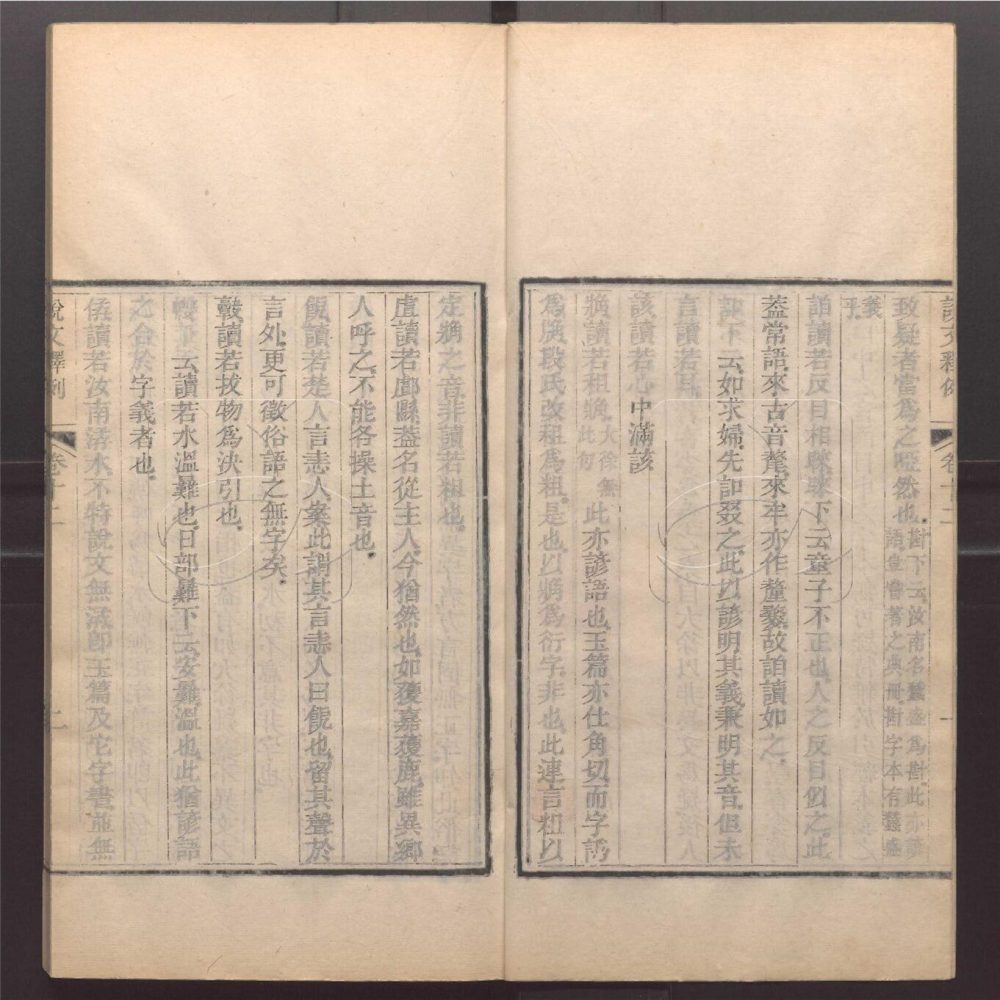 說文釋例
卷十二
致疑者當爲之啞然也
斟下云汝南名蠶盛爲斟此亦諺
語筆著之典冊斟字本有蠶盛
義
乎
䛆讀若反目相睞睞下云童子不正也人之反目似之此
蓋常語來古音釐來牟亦作釐䵩故䛆讀如之
訆下云如求婦先訆叕之此以諺明其義兼明其音但未
言讀若
該讀若心中滿該
㸽讀若粗㸽大徐無此句此亦諺語也玉篇亦仕角切而字
爲段氏改租爲粗是也以㸽爲衍字非也此連言粗以
定㸽之音非讀若粗也
䖒讀若鄜縣蓋名從主人今猶然也如獲嘉獲鹿雖異鄉
人呼之不能各操土音也
饇讀若楚人言恚人案此謂其言恚人曰也留其聲於
言外更可徵俗語之無字矣
讀若拔物爲決引也
下云讀若水溫㬮也日部㬮下云安㬮溫也此猶諺語
之合於字義者也
讀若汝南水不特說文無卽玉篇及它字書並無
說文釋例
卷十二